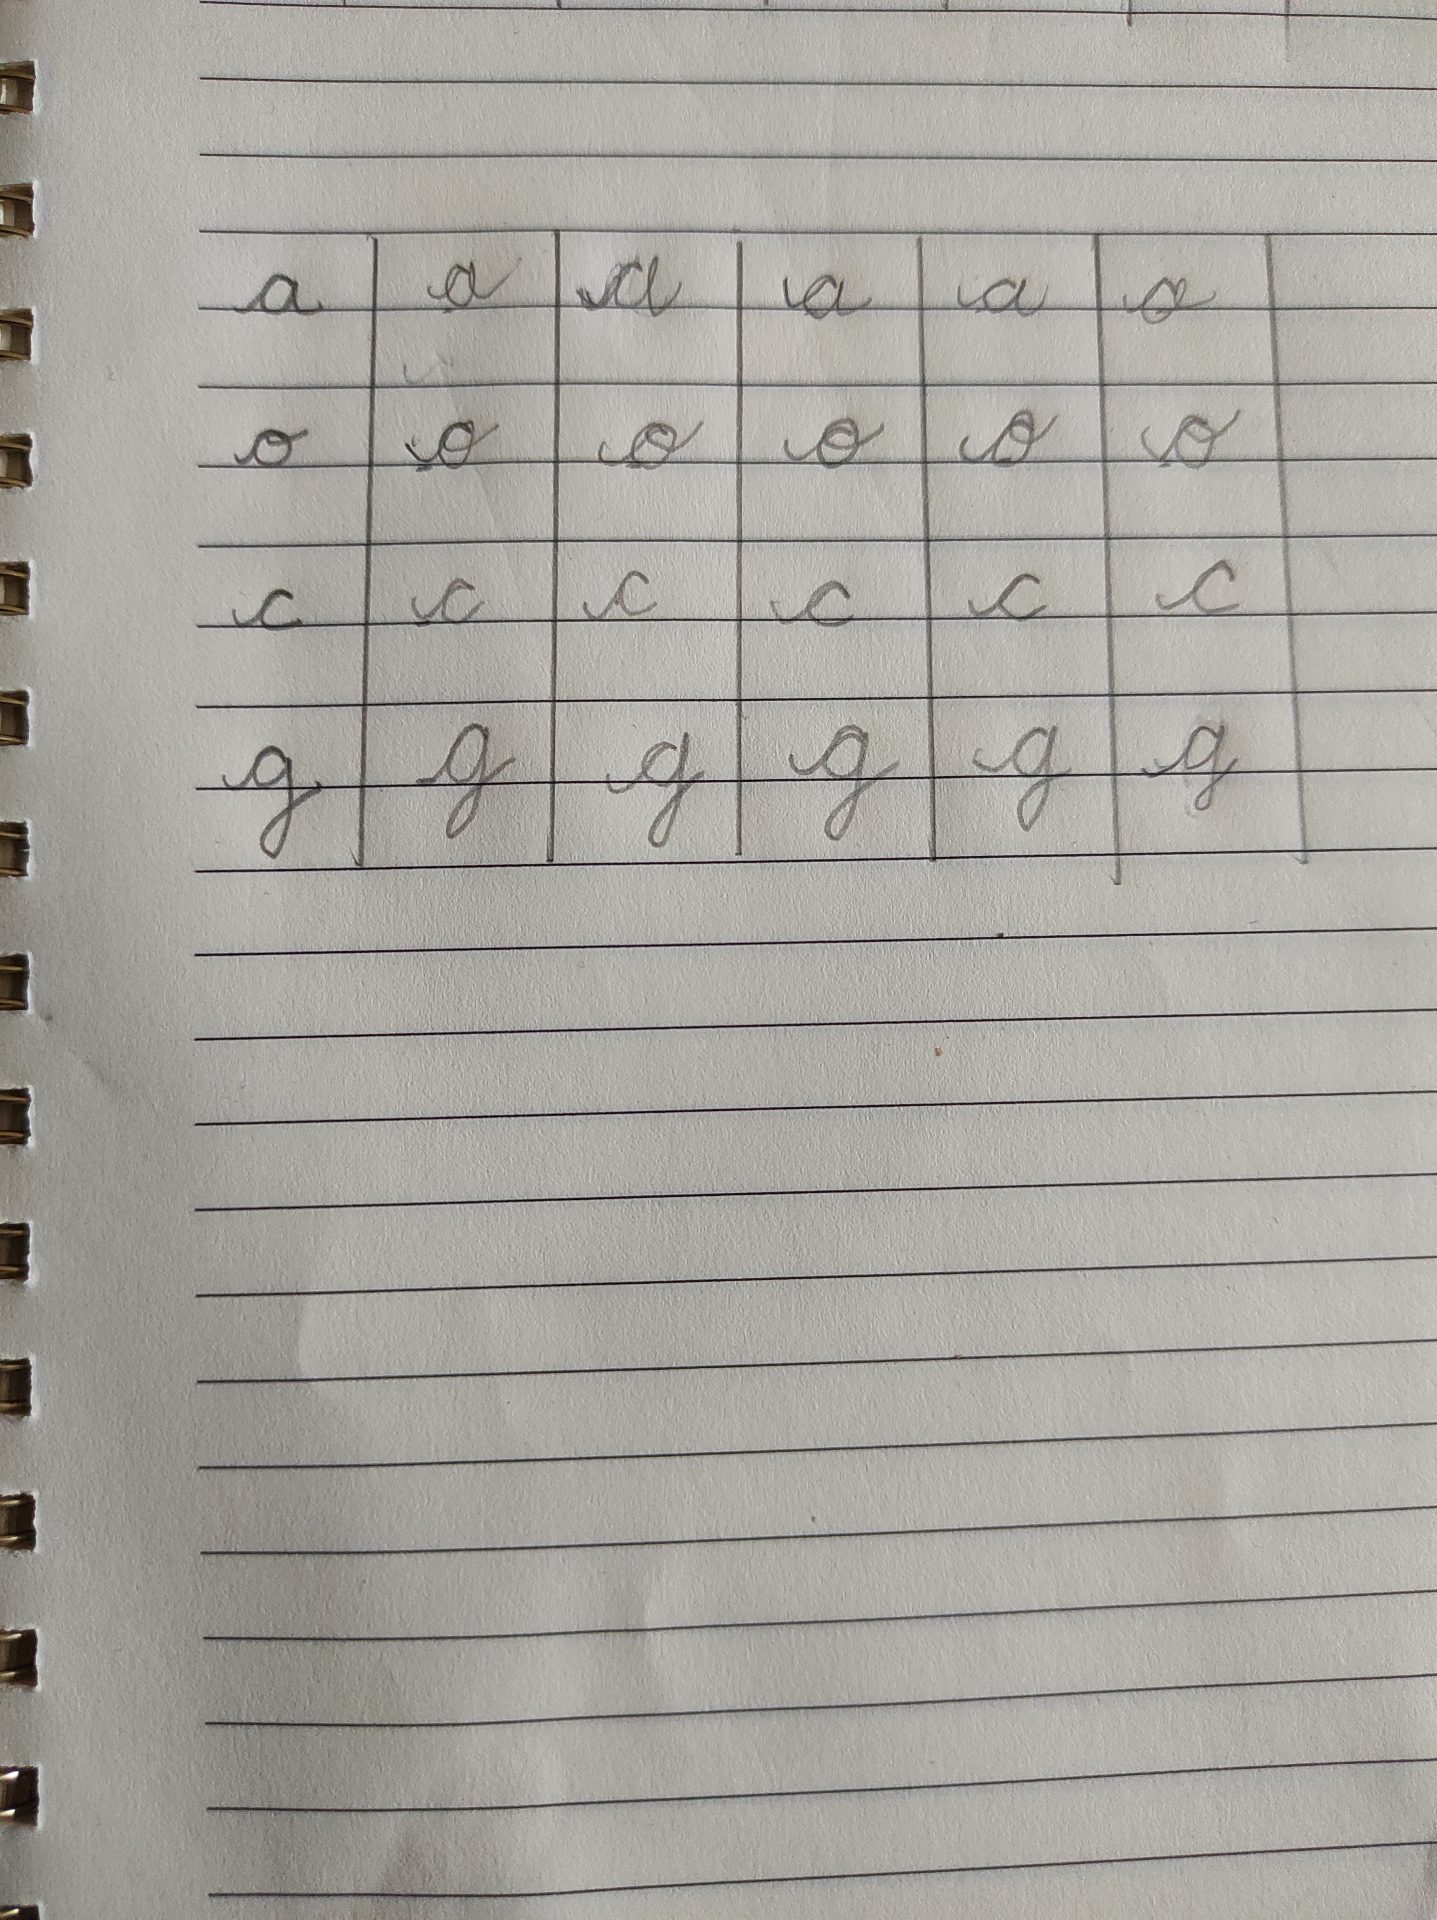 a a a a a a
o o o o o o
c c c c c c
g g g g g g